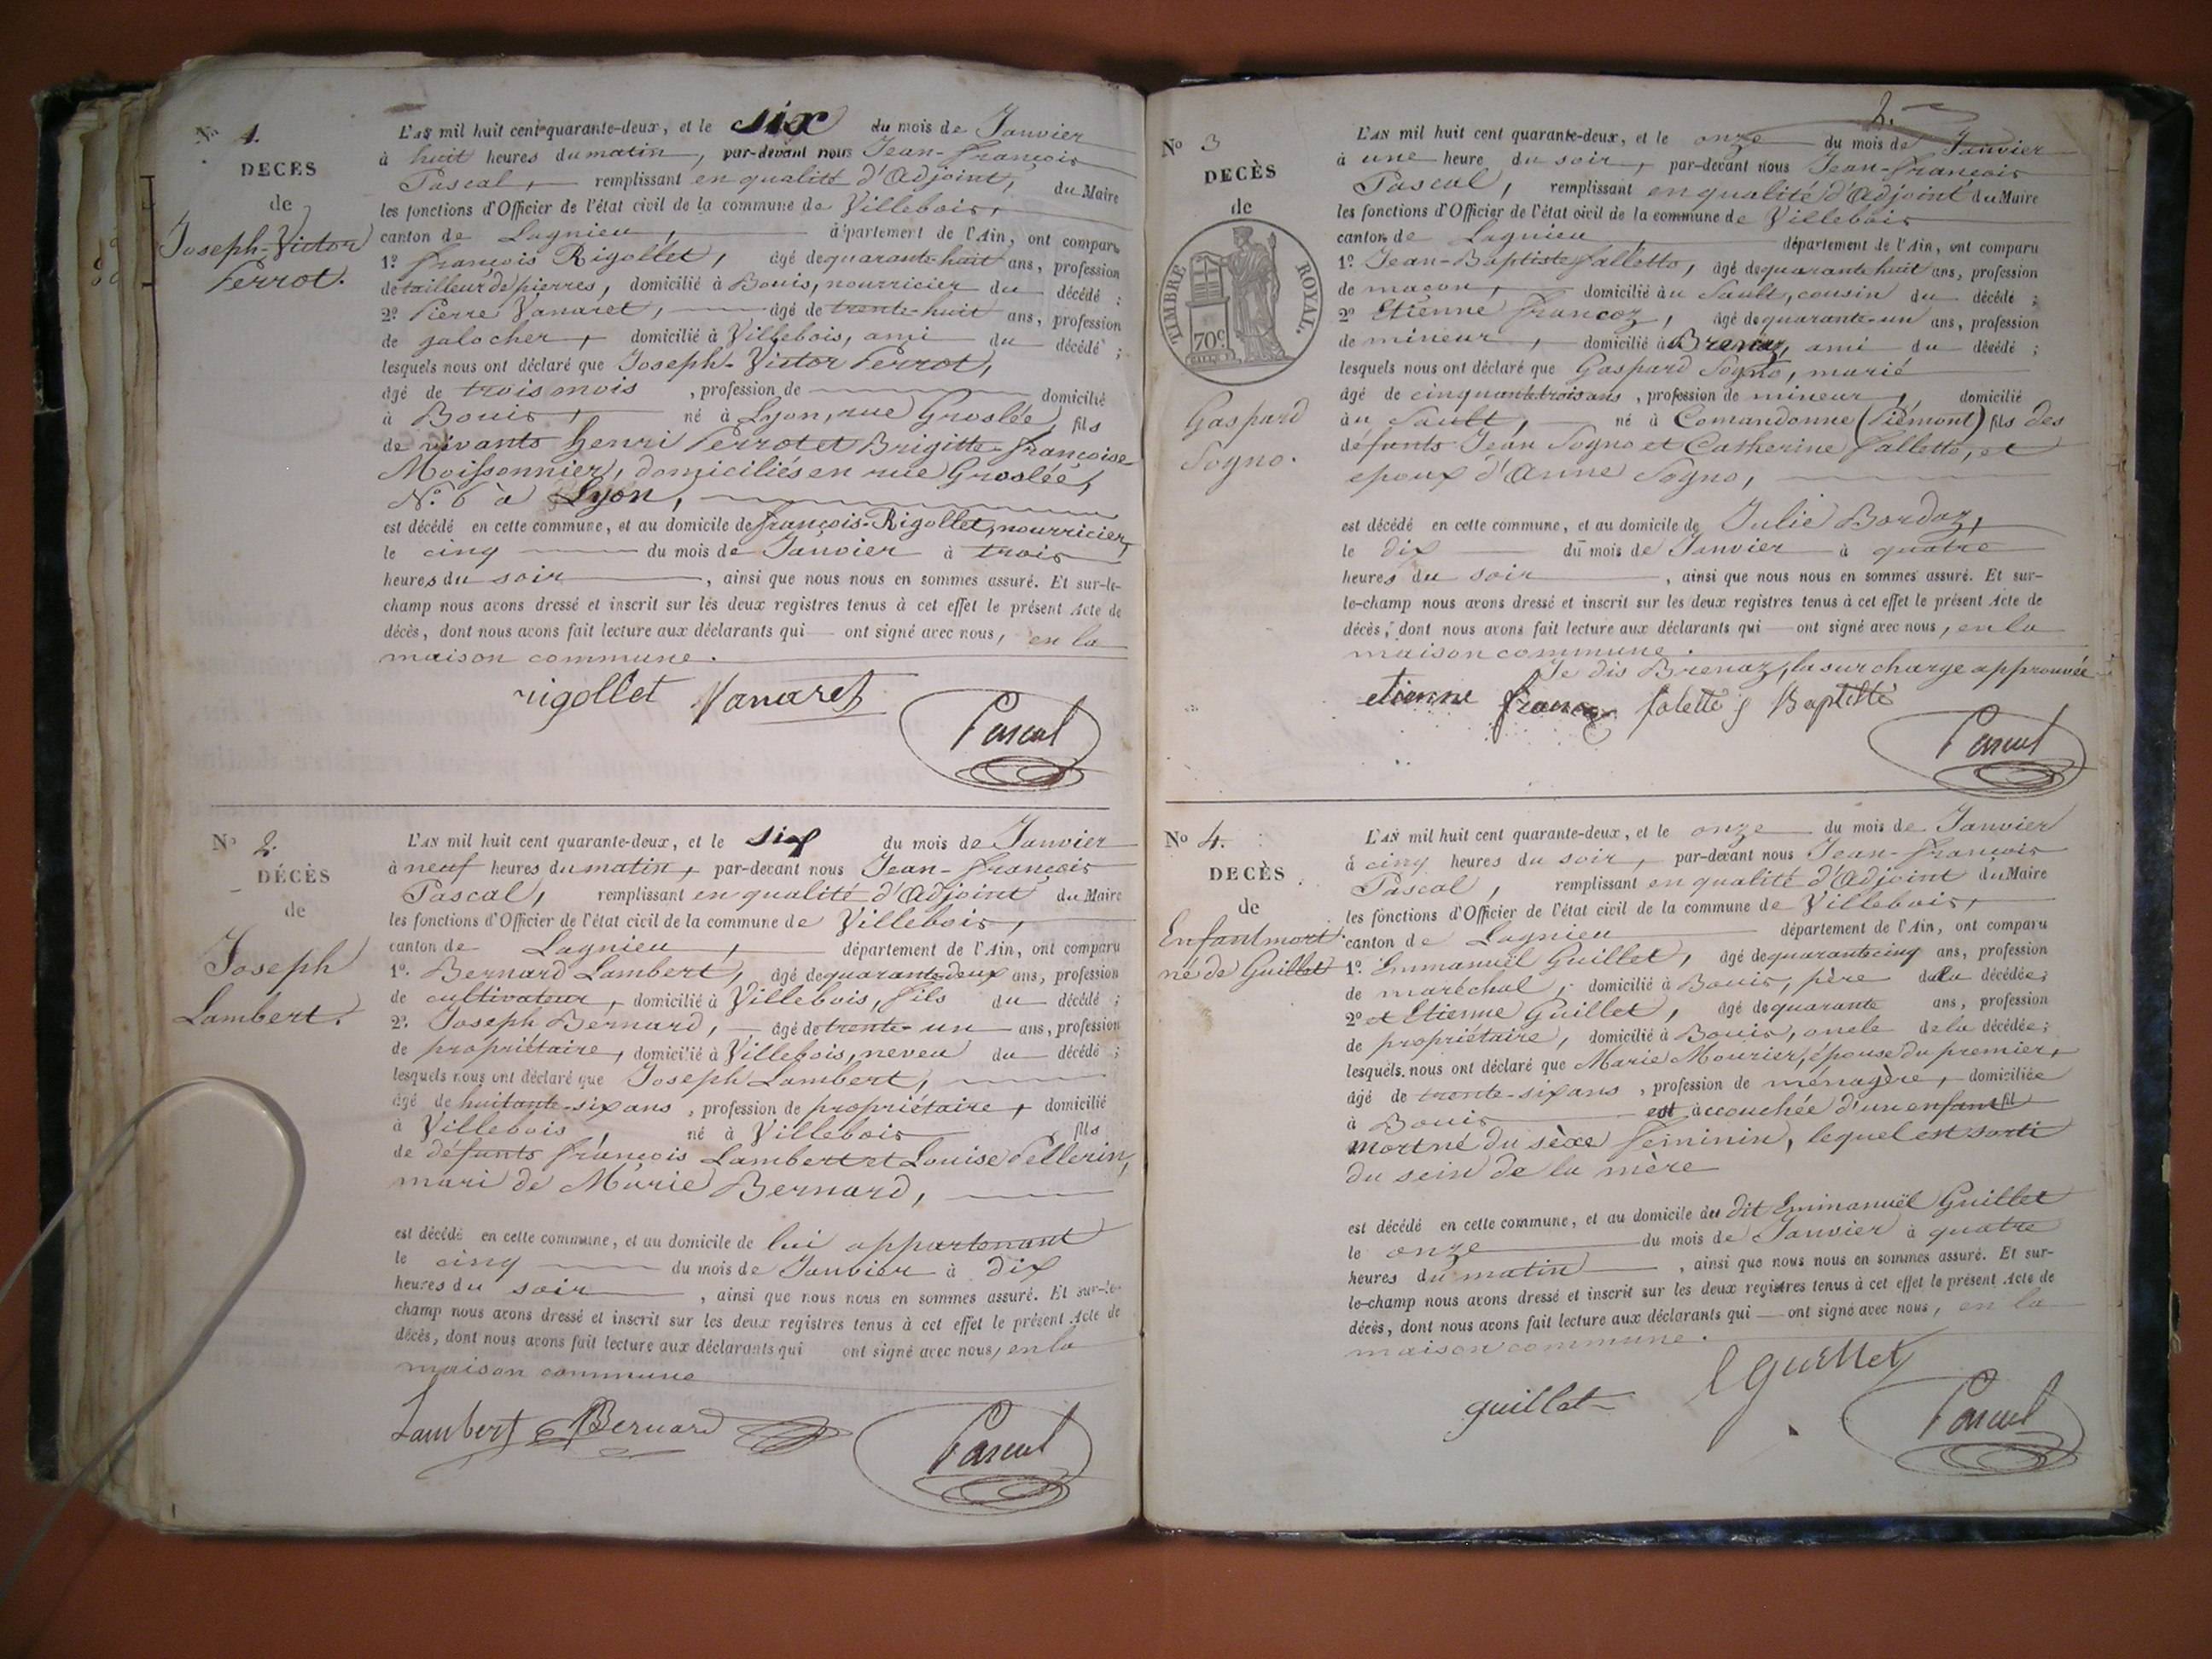 No 1.
DECES
de
Joseph-Victor
Perrot.
L'AN mil huit cent quarante-deux, et le six du mois de Janvier
à huit heures du matin, par-devant nous Jean-françois
Pascal, remplissant en qualité d'Adjoint, du Maire
les fonctions d'Officier de l'état civil de la commune de Villebois,
canton de Lagnieu, département de l'Ain, ont comparu
1º. françois Rigollet, âgé de quarante-huit ans, profession
de tailleur de pierres, domicilié à Bouis, nourricier du décédé ;
2º. Pierre Vanaret, âgé de trente-huit ans, profession
de galocher, domicilié à Villebois, ami du décédé ;
lesquels nous ont déclaré que Joseph-Victor Perrot,
âgé de trois mois, profession de domicilié
à Bouis, né à Lyon, rue Groslée, fils
de vivants henri Perrot et Brigitte-françoise
Moissonnier, domiciliés en rue Groslée,
Nº. 6 à Lyon,
est décédé en cette commune, et au domicile de françois-Rigollet, nourricier,
le cinq du mois de Janvier à trois
heures du soir, ainsi que nous nous en sommes assuré. Et sur-le-
champ nous avons dressé et inscrit sur les deux registres tenus à cet effet le présent Acte de
décès, dont nous avons fait lecture aux déclarants qui ont signé avec nous, en la
maison commune.
rigollet Vanaret
Pascal
No 2.
DÉCÈS
de
Joseph
Lambert.
L'AN mil huit cent quarante-deux, et le six du mois de Janvier
à neuf heures du matin, par-devant nous Jean-françois
Pascal, remplissant en qualité d'Adjoint du Maire
les fonctions d'Officier de l'état civil de la commune de Villebois,
canton de Lagnieu, département de l'Ain, ont comparu
1º. Bernard Lambert, âgé de quarante-deux ans, profession
de cultivateur, domicilié à Villebois, fils du décédé ;
2º. Joseph Bernard, âgé de trente-un ans, profession
de propriétaire, domicilié à Villebois, neveu du décédé ;
lesquels nous ont déclaré que Joseph Lambert,
âgé de huitante-six ans, profession de propriétaire, domicilié
à Villebois, né à Villebois fils
de défunts françois Lambert et Louise Pellerin,
mari de Marie Bernard,
est décédé en cette commune, et au domicile de lui appartenant
le cinq du mois de Janvier à dix
heures du soir, ainsi que nous nous en sommes assuré. Et sur-le-
champ nous avons dressé et inscrit sur les deux registres tenus à cet effet le présent Acte de
décès, dont nous avons fait lecture aux déclarants qui ont signé avec nous, en la
maison commune
Lambert Bernard
Pascal
2.
No 3
DECÈS
de
TIMBRE ROYAL.
70c
Gaspard
Sogno.
L'AN mil huit cent quarante-deux, et le onze du mois de Janvier
à une heure du soir, par-devant nous Jean-françois
Pascal, remplissant en qualité d'Adjoint du Maire
les fonctions d'Officier de l'état civil de la commune de Villebois
canton de Lagnieu département de l'Ain, ont comparu
1º. Jean-Baptiste falletto, âgé de quarante huit ans, profession
de maçon, domicilié au Sault, cousin du décédé ;
2º Etienne francoz, âgé de quarante-un ans, profession
de mineur, domicilié à Brenaz, ami du décédé ;
lesquels nous ont déclaré que Gaspard Sogno, marié
âgé de cinquante trois ans, profession de mineur, domicilié
au Sault, né à Comandonne (Piémont) fils des
défunts Jean Sogno et Catherine falletto, et
epoux d'Anne Sogno,
est décédé en cette commune, et au domicile de Julie Bordaz,
le dix du mois de Janvier à quatre
heures du soir, ainsi que nous nous en sommes assuré. Et sur-
le-champ nous avons dressé et inscrit sur les deux registres tenus à cet effet le présent Acte de
décès, dont nous avons fait lecture aux déclarants qui ont signé avec nous, en la
maison commune.
Je dis Brenaz, la surcharge approuvée
etienne francoz falette j Baptiste
Pascal
No 4.
DECÈS
de
Enfant mort
né de Guillet
L'AN mil huit cent quarante-deux, et le onze du mois de Janvier
à cinq heures du soir, par-devant nous Jean-françois
Pascal, remplissant en qualité d'Adjoint du Maire
les fonctions d'Officier de l'état civil de la commune de Villebois,
canton de Lagnieu département de l'Ain, ont comparu
1º. Emmanuël Guillet, âgé de quarante cinq ans, profession
de maréchal, domicilié à Bouis, père de la décédée ;
2º et Etienne Guillet, âgé de quarante ans, profession
de propriétaire, domicilié à Bouis, oncle de la décédée ;
lesquels nous ont déclaré que Marie Mourier, épouse du premier,
âgé de trente-six ans, profession de ménagère, domiciliée
à Bouis est accouchée d'un enfant
mort né du sèxe féminin, lequel est sorti
du sein de la mère
est décédé en cette commune, et au domicile du dit Emmanuël Guillet
le onze du mois de Janvier à quatre
heures du matin, ainsi que nous nous en sommes assuré. Et sur-
le-champ nous avons dressé et inscrit sur les deux registres tenus à cet effet le présent Acte de
décès, dont nous avons fait lecture aux déclarants qui ont signé avec nous, en la
maison commune.
guillet E Guillet
Pascal